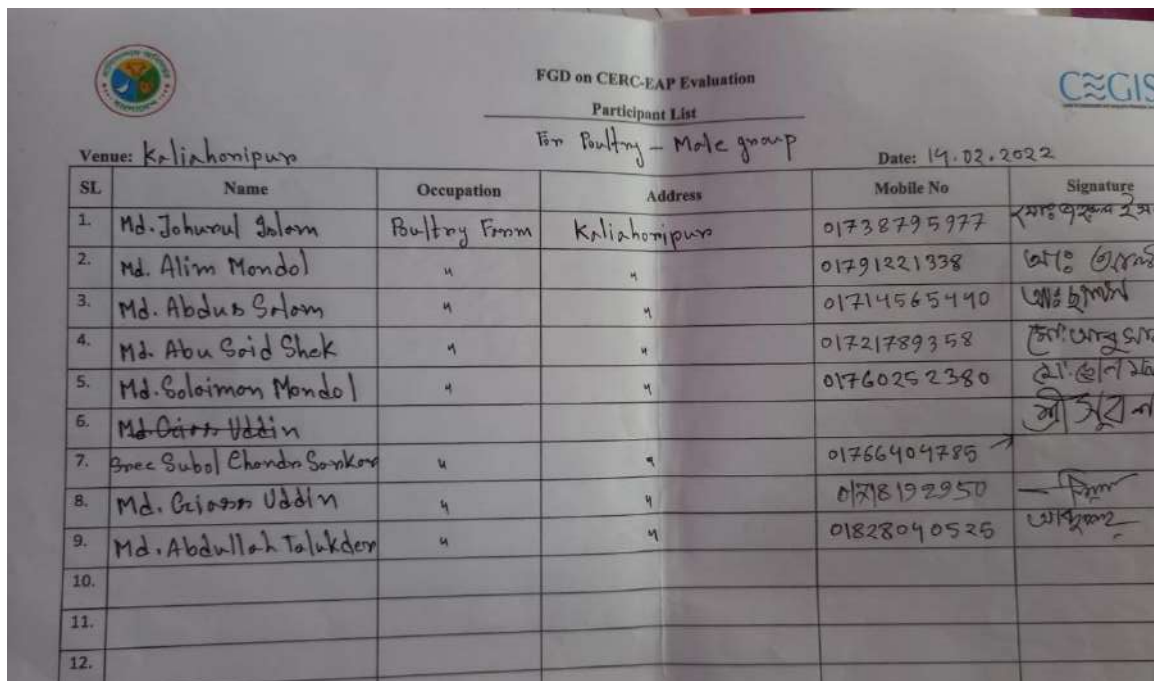 FGD on CERC-EAP Evaluation
CEGIS
Participant List
For Poultry - Male group
Venue: Kaliahoripur Date: 14.02.2022
SL Name Occupation Address Mobile No Signature
1. Md. Johurul Islam Poultry Farm Kaliahoripur 01738795977
2. Md. Alim Mondol " " 01791221338
3. Md. Abdus Salam " " 01714565440
4. Md. Abu Said Shek " " 01721789358
5. Md. Solaiman Mondol " " 01760252380
6. Uddin
7. Sree Subol Chandra Sarkar " " 01766404785
8. Md. Giass Uddin " " 01718192950
9. Md. Abdullah Talukder " " 01828040525
10.
11.
12.